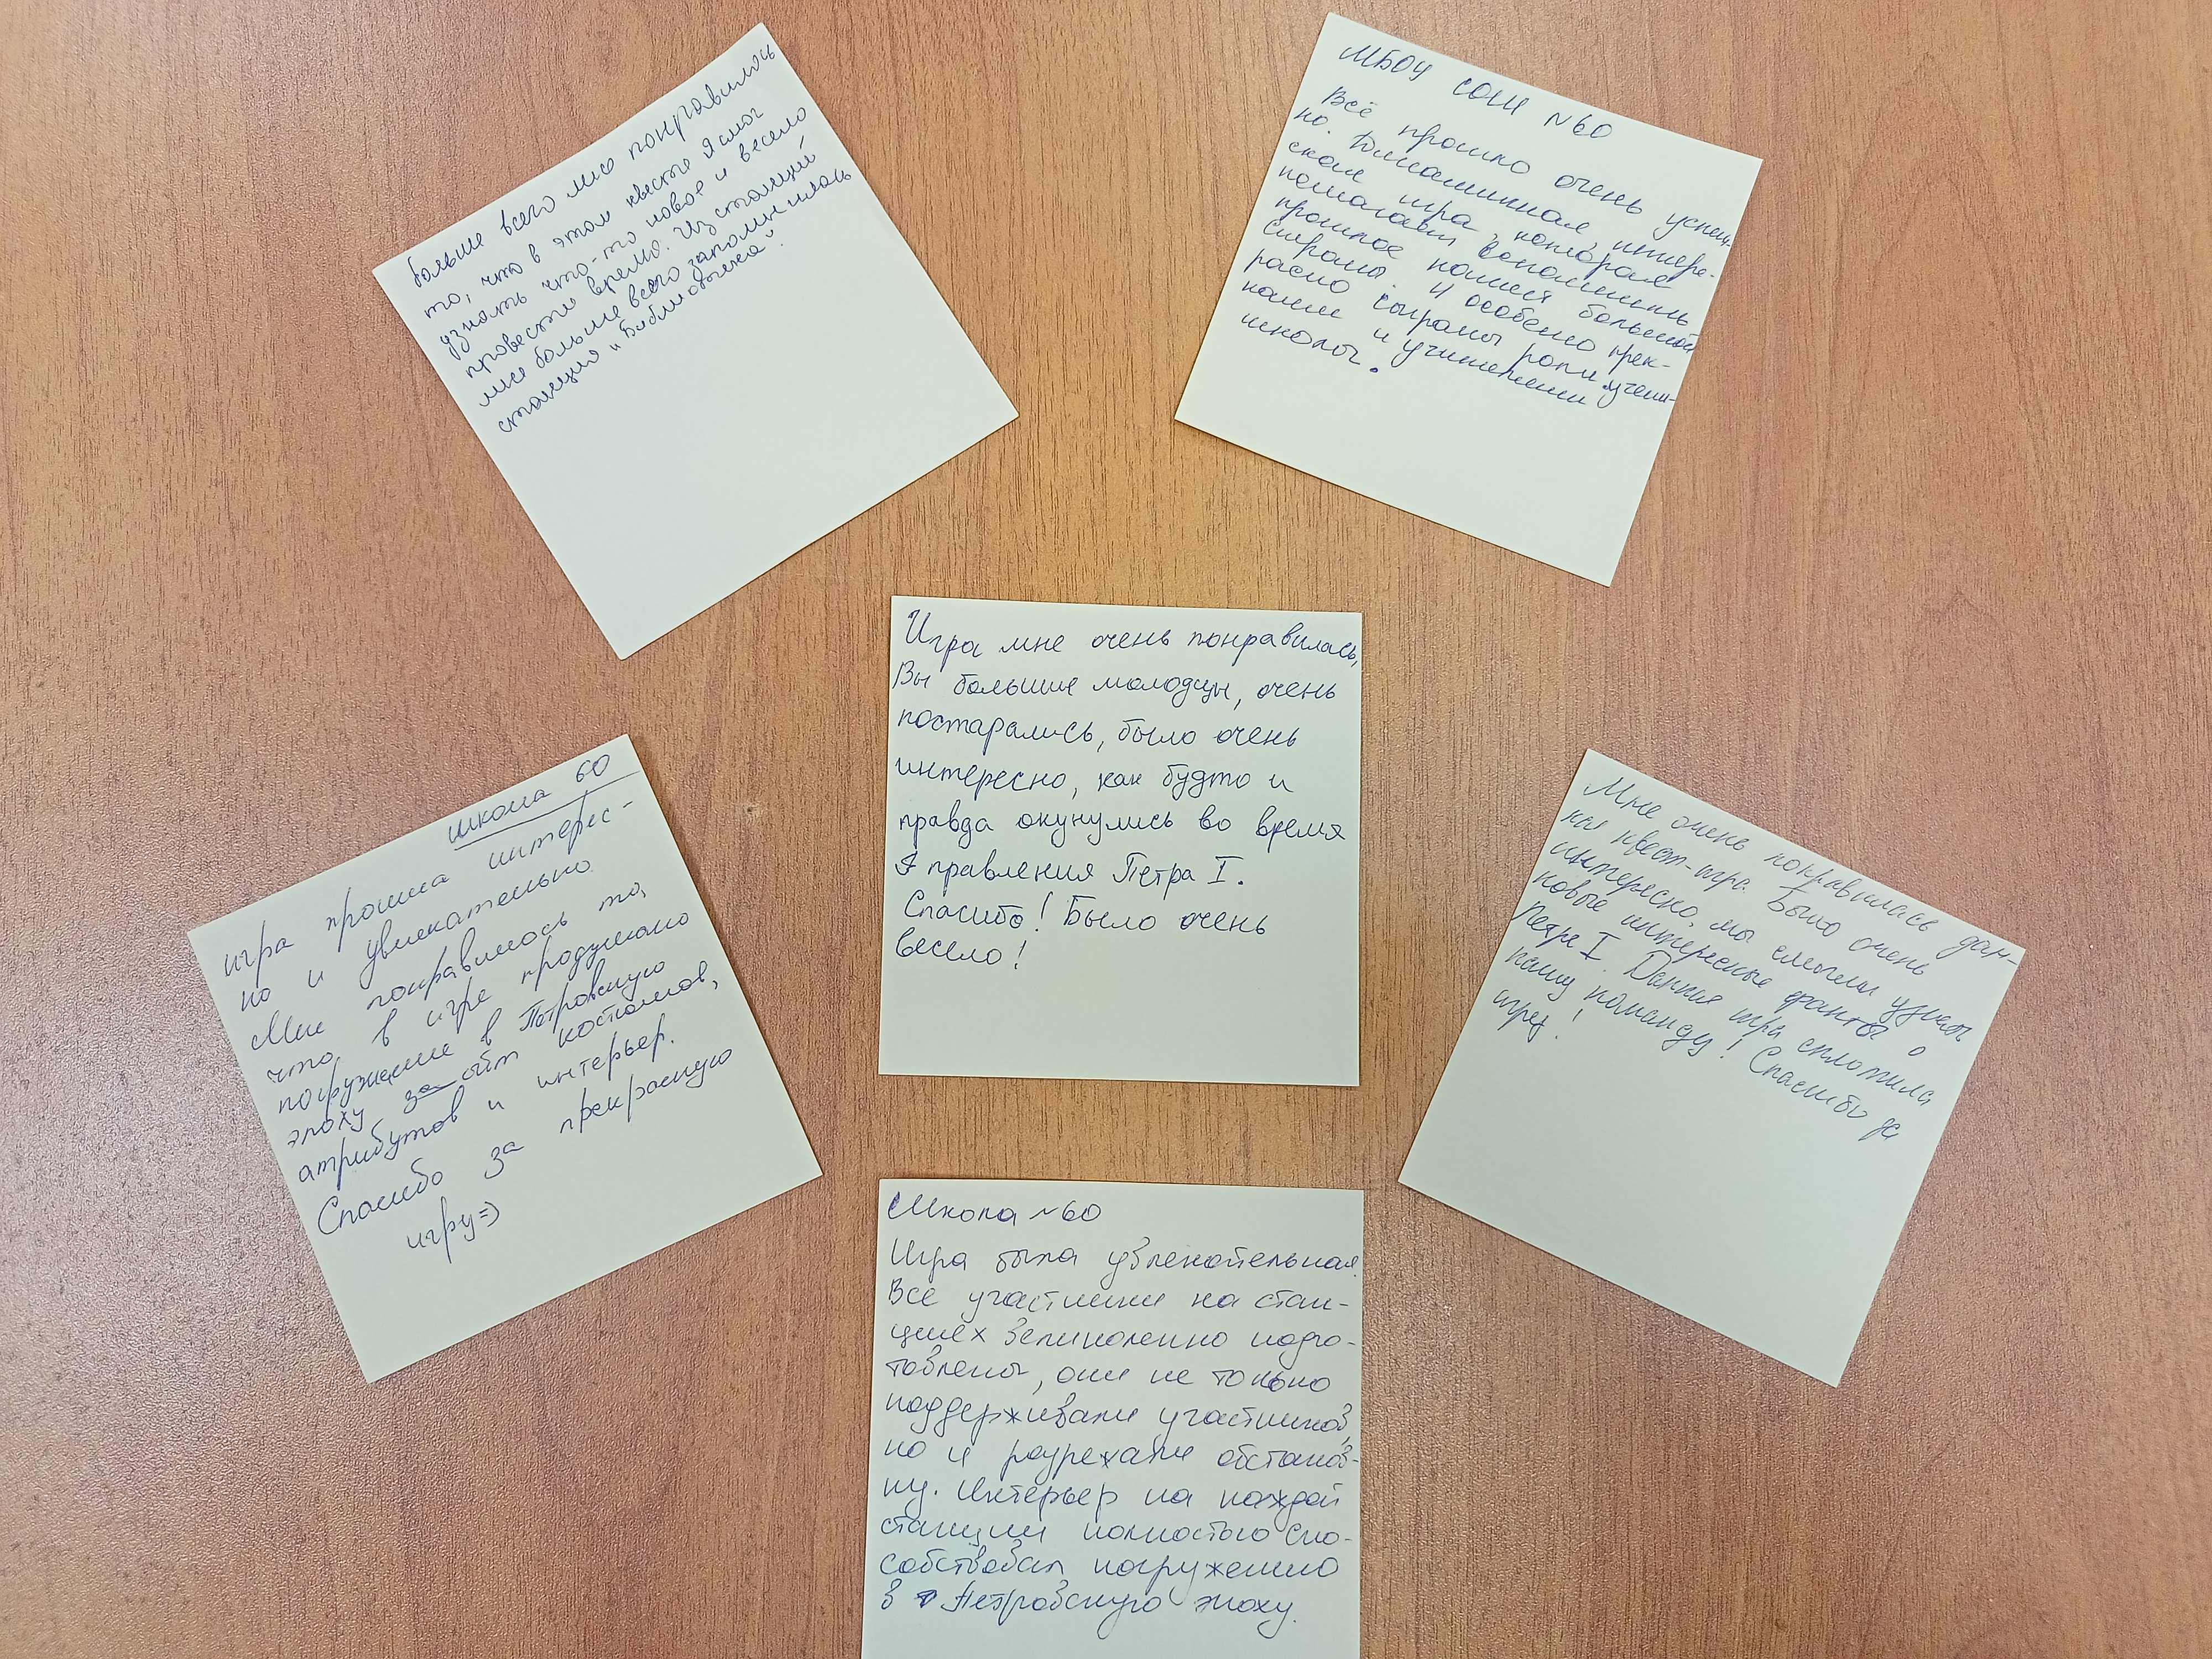 больше всего мне понравилось
то, что в этом квесте я смог
узнать что-то новое и весело
провести время. Из станций
мне больше всего запомнилась
станция "Библиотека".
МБОУ СОШ №60
Всё прошло очень успеш-
но. Динамичная, интере-
сная игра, которая
помогает вспомнить
прошлое нашей большой
страны. И особено прек-
расно сыграны роли учени-
ками и учителями
школы.
Игра мне очень понравилась,
Вы большие молодцы, очень
постарались, было очень
интересно, как будто и
правда окунулись во время
правления Петра I.
Спасибо! Было очень
весело!
школа 60
игра прошла интерес-
но и увлекательно.
Мне понравилось то,
что в игре продумано
погружение в Петровскую
эпоху за счёт костюмов,
атрибутов и интерьер.
Спасибо за прекрасную
игру =)
Мне очень понравилась дан-
ная квест-игра. Было очень
интересно, мы смогли узнать
новые интересные факты о
Петре I. Данная игра сплотила
нашу команду! Спасибо за
игру!
Школа №60
Игра была увлекательная.
Все участники на стан-
циях великоленно подго-
товлены, они не только
поддерживали участников,
но и разрежали обстанов-
ку. Интерьер на каждой
станции полностью спо-
собствовал погружению
в Петровскую эпоху.